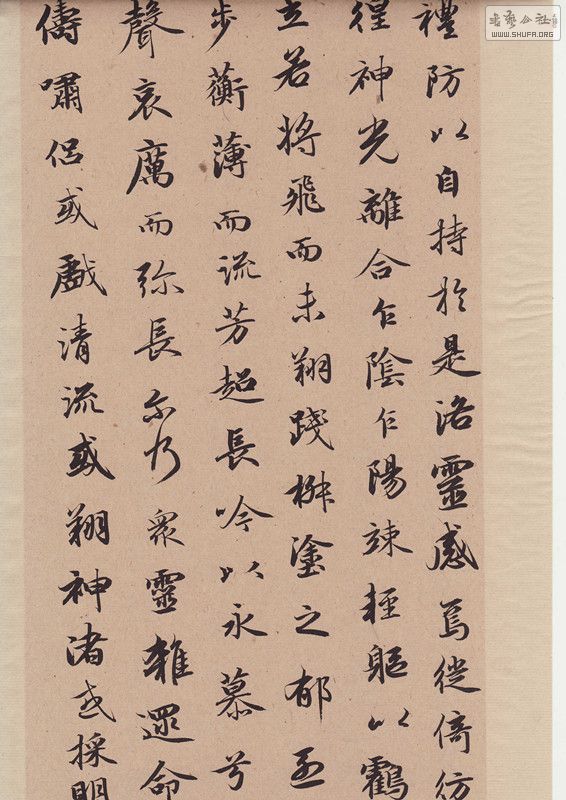 禮防以自持於是洛靈感焉徙倚彷
徨神光離合乍陰乍陽竦輕軀以鶴
立若將飛而未翔踐椒塗之郁
步蘅薄而流芳超長吟以永慕兮
聲哀厲而弥長尔乃衆靈雜遝命
儔嘯侶或戲清流或翔神渚或採明
書藝公社
WWW.SHUFA.ORG